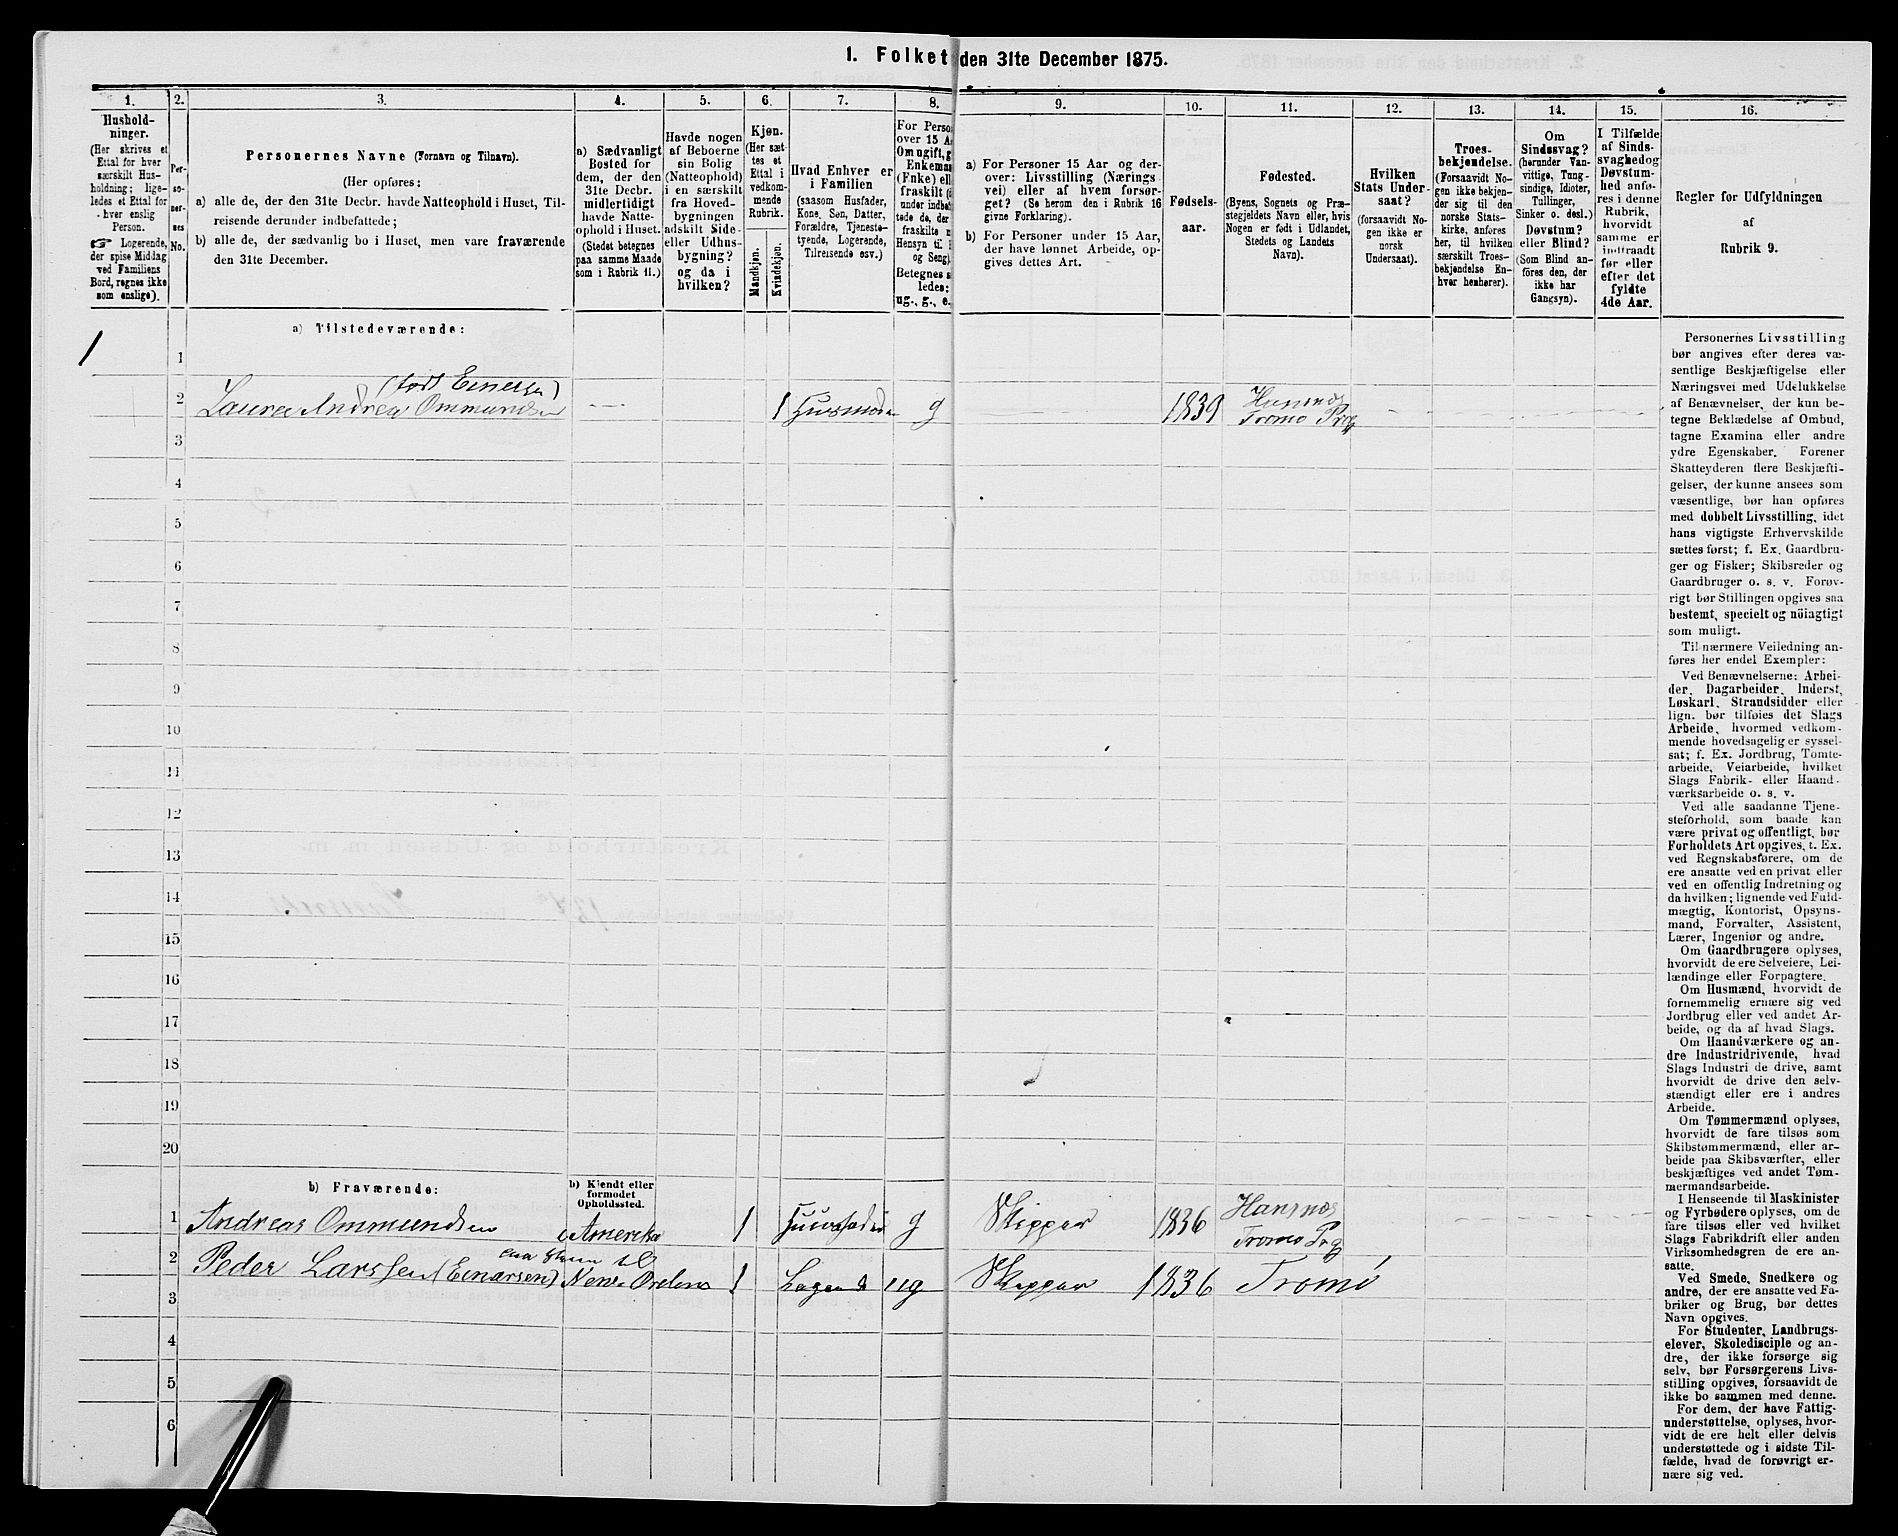 1. Folket den 31te December 1875.
1.
2.
3.
4.
5.
6.
7.
8.
9.
10.
11.
12.
13.
14.
15.
16.
Hushold-
ninger.
(Her skrives et
Ettal for hver
særskilt Hus-
holdning; lige-
ledes et Ettal for
hver enslig
Person.
Logerende,
der spise Middag
ved Familiens
Bord, regnes ikke
som enslige).
Per-
so-
ner-
nes
No.
Personernes Navne (Fornavn og Tilnavn).
(Her opføres:
a) alle de, der den 31te Decbr. havde Natteophold i Huset, Til-
reisende derunder indbefattede;
b) alle de, der sædvanlig bo i Huset, men vare fraværende
den 31te December.
a) Sædvanligt
Bosted for
dem, der den
31te Decbr.
midlertidigt
havde Natte-
ophold i Huset.
(Stedet betegnes
paa samme Maade
som i Rubrik 11.)
Havde nogen
af Beboerne
sin Bolig
(Natteophold)
i en særskilt
fra Hoved-
bygningen
adskilt Side-
eller Udhus-
bygning?
og da i
hvilken?
Kjøn.
(Her sæt-
tes et
Ettal i
vedkom-
mende
Rubrik.
Mandkjøn.
Kvindekjøn.
Hvad Enhver er
i Familien
(saasom Husfader,
Kone, Søn, Datter,
Forældre, Tjeneste-
tyende, Logerende,
Tilreisende osv.)
For Perso
over 15 A
Om ugift, g
Enkeman
(Enke) ell
fraskilt (
under indbe
tede de, der
fraskilte
Hensyn til
og Seng).
Betegnes s
ledes:
ug., g., e.
a) For Personer 15 Aar og der-
over: Livsstilling (Nærings-
vei) eller af hvem forsør-
get? (Se herom den i Rubrik 16
givne Forklaring).
b) For Personer under 15 Aar,
der have lønnet Arbeide, op-
gives dettes Art.
Fødsels-
aar.
Fødested.
(Byens, Sognets og Præ-
stegjeldets Navn eller, hvis
Nogen er født i Udlandet,
Stedets og Landets
Navn).
Hvilken
Stats Under-
saat?
(forsaavidt No-
gen ikke er
norsk
Undersaat).
Troes-
bekjendelse.
(Forsaavidt No-
gen ikke bekjen-
der sig til den
norske Stats-
kirke, anføres
her, til hvilken
særskilt Troes-
bekjendelse En-
hver henhører).
Om
Sindssvag?
(herunder Van-
vittige, Tung-
sindige, Idioter,
Tullinger,
Sinker o. desl.)
Døvstum?
eller Blind?
(Som Blind an-
føres den, der
ikke har
Gangsyn).
I Tilfælde
af Sinds-
svaghed og
Døvstum-
hed anfø-
res i denne
Rubrik,
hvorvidt
samme er
indtraadt
før eller
efter det
fyldte
4de Aar.
Regler for Udfyldningen
af
Rubrik 9.
a) Tilstedeværende:
1
1
(født Einersen)
2 Laura Andrea Ommundsen 1 Husmoder g 1839 Hansnæs
Tromø Prg
3
4
5
6
7
8
9
10
11
12
13
14
15
16
17
18
19
20
b) Fraværende:
b) Kjendt eller
formodet
Opholdssted.
1 Andreas Ommundsen Amerika 1 Huusfader g Skipper 1836 Hansnæs
Tromø Prg
2 Peder Larssen (Einarsen) 1 ug Skipper 1836 Tromø
3
4
5
6
Personernes Livsstilling
bør angives efter deres væ-
sentlige Beskjæftigelse eller
Næringsvei med Udelukkelse
af Benævnelser, der kun be-
tegne Beklædelse af Ombud,
tagne Examina eller andre
ydre Egenskaber. Forener
Skatteyderen flere Beskjæfti-
gelser, der kunne ansees som
væsentlige, bør han opføres
med dobbelt Livsstilling, idet
hans vigtigste Erhvervskilde
sættes først; f. Ex. Gaardbru-
ger og Fisker; Skibsreder og
Gaardbruger o. s. v. Forøv-
rigt bør Stillingen opgives saa
bestemt, specielt og nöiagtigt
som muligt.
Til nærmere Veiledning an-
føres her endel Exempler:
Ved Benævnelserne: Arbei-
der, Dagarbeider, Inderst,
Løskarl, Strandsidder eller
lign. bør tilføies det Slags
Arbeide, hvormed vedkom-
mende hovedsagelig er syssel-
sat; f. Ex. Jordbrug, Tomte-
arbeide, Veiarbeide, hvilket
Slags Fabrik- eller Haand-
værksarbeide o. s. v.
Ved alle saadanne Tjene-
steforhold, som baade kan
være privat og offentligt, bør
Forholdets Art opgives, t. Ex.
ved Regnskabsførere, om de
ere ansatte ved en privat eller
ved en offentlig Indretning og
da hvilken; lignende ved Fuld-
mægtig, Kontorist, Opsyns-
mand, Forvalter, Assistent,
Lærer, Ingeniør og andre.
Om Gaardbrugere oplyses,
hvorvidt de ere Selveiere, Lei-
lændinge eller Forpagtere.
Om Husmænd, hvorvidt de
fornemmelig ernære sig ved
Jordbrug eller ved andet Ar-
beide, og da af hvad Slags.
Om Haandværkere og an-
dre Industridrivende, hvad
Slags Industri de drive, samt
hvorvidt de drive den selv-
stændigt eller ere i andres
Arbeide.
Om Tømmermænd oplyses,
hvorvidt de fare tilsøs som
Skibstømmermænd, eller ar-
beide paa Skibsværfter, eller
beskjæftiges ved andet Tøm-
mermandsarbeide.
I Henseende til Maskinister
og Fyrbødere oplyses, om de
fare tilsøs eller ved hvilket
Slags Fabrikdrift eller anden
Virksomhedsgren de ere an-
satte.
Ved Smede, Snedkere og
andre, der ere ansatte ved Fa-
briker og Brug, bør dettes
Navn opgives.
For Studenter, Landbrugs-
elever, Skoledisciple og an-
dre, der ikke forsørge sig
selv, bør Forsørgerens Livs-
stilling opgives, forsaavidt de
ikke bo sammen med denne.
For dem, der have Fattig-
understøttelse, oplyses, hvor-
vidt de ere helt eller delvis
understøttede og i sidste Til-
fælde, hvad de forøvrigt er-
nære sig ved.